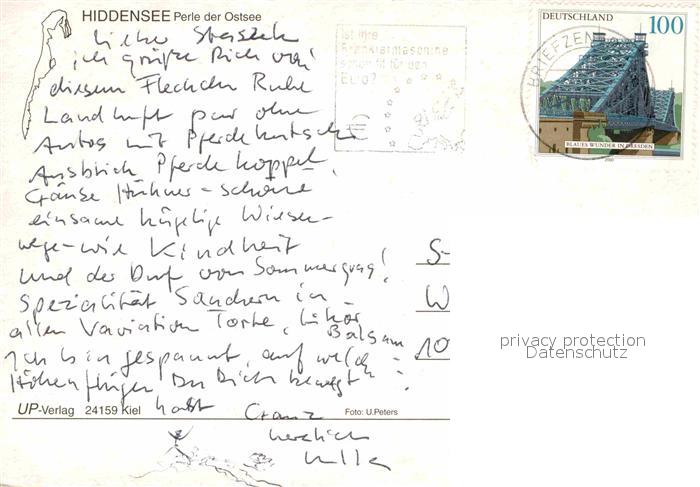 HIDDENSEE Perle der Ostsee
ich grüße Dich von
diesem Fleckchen Ruhe
Landluft pur ohne
Autos mit Pferdekutsche
Ausblick Pferdekoppel,
Gänse Hühner - schöne
einsame hügelige Wiesen-
wege - wie Kindheit
und der Duft von Sommergras!
Spezialität Sanddorn in
allen Variation Torte, Likör
Balsam
Ich bin gespannt, auf welch
Höhenflüge Du Dich bewegt
hast
Ganz
herzlich
UP-Verlag 24159 Kiel
Foto: U.Peters
Ist Ihre
Frankiermaschine
schon fit für den
Euro?
€
BRIEFZEN
DEUTSCHLAND 100
BLAUES WUNDER IN DRESDEN
2000
S-
W
10
privacy protection
Datenschutz